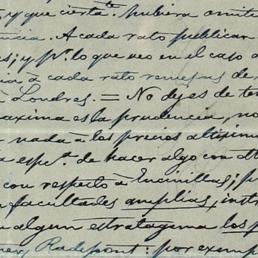 y que ciertе. hubiera omitі
ncia. A cada rato publican
es; y pr. lo que veo en el caso d
ia à cada rato remesas de
à Londres. = No dejes de ten
axima es la prudencia, no
nada à los precios altisimo
a espe͞. de hacer algo con
con respecto à Encinillas; p
facultades amplias, inst
algun estratagema los p
Radepont: por exemp